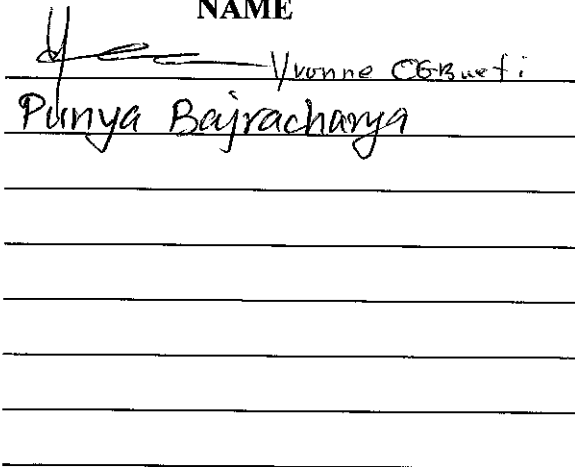 NAME
Yvonne OGBuefi
Punya Bajracharya